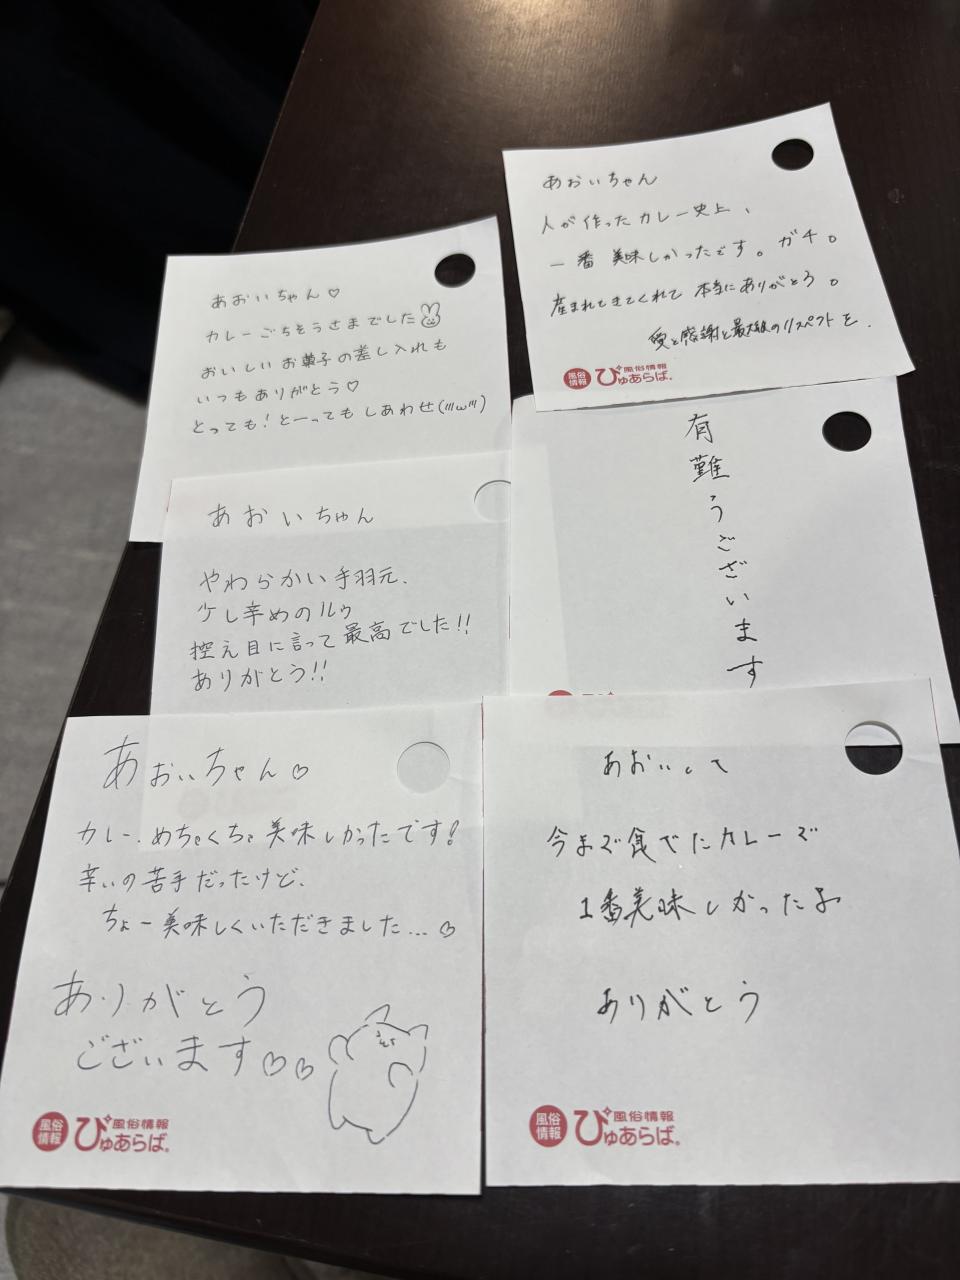 あおいちゃん
人が作ったカレー史上、
一番 美味しかったです。ガチ。
産まれてきてくれて 本当にありがとう。
愛と感謝と最大級のリスペクトを.
風俗情報
ぴゅあらば。
風俗情報
あおいちゃん♡
カレーごちそうさまでした
おいしいお菓子の差し入れも
いつもありがとう♡
とっても!とーってもしあわせ(///ω///)
有難うございます
あおいちゃん
やわらかい手羽元.
少し辛めのルゥ
控え目に言って最高でした!!
ありがとう!!
あおいちゃん♡
カレー.めちゃくちゃ美味しかったです!
辛いの苦手だったけど.
ちょー美味しくいただきました...♡
ありがとう
ございます♡♡
風俗情報
ぴゅあらば。
風俗情報
今まで食べたカレーで
1番美味しかったよ
ありがとう
風俗情報
ぴゅあらば。
風俗情報